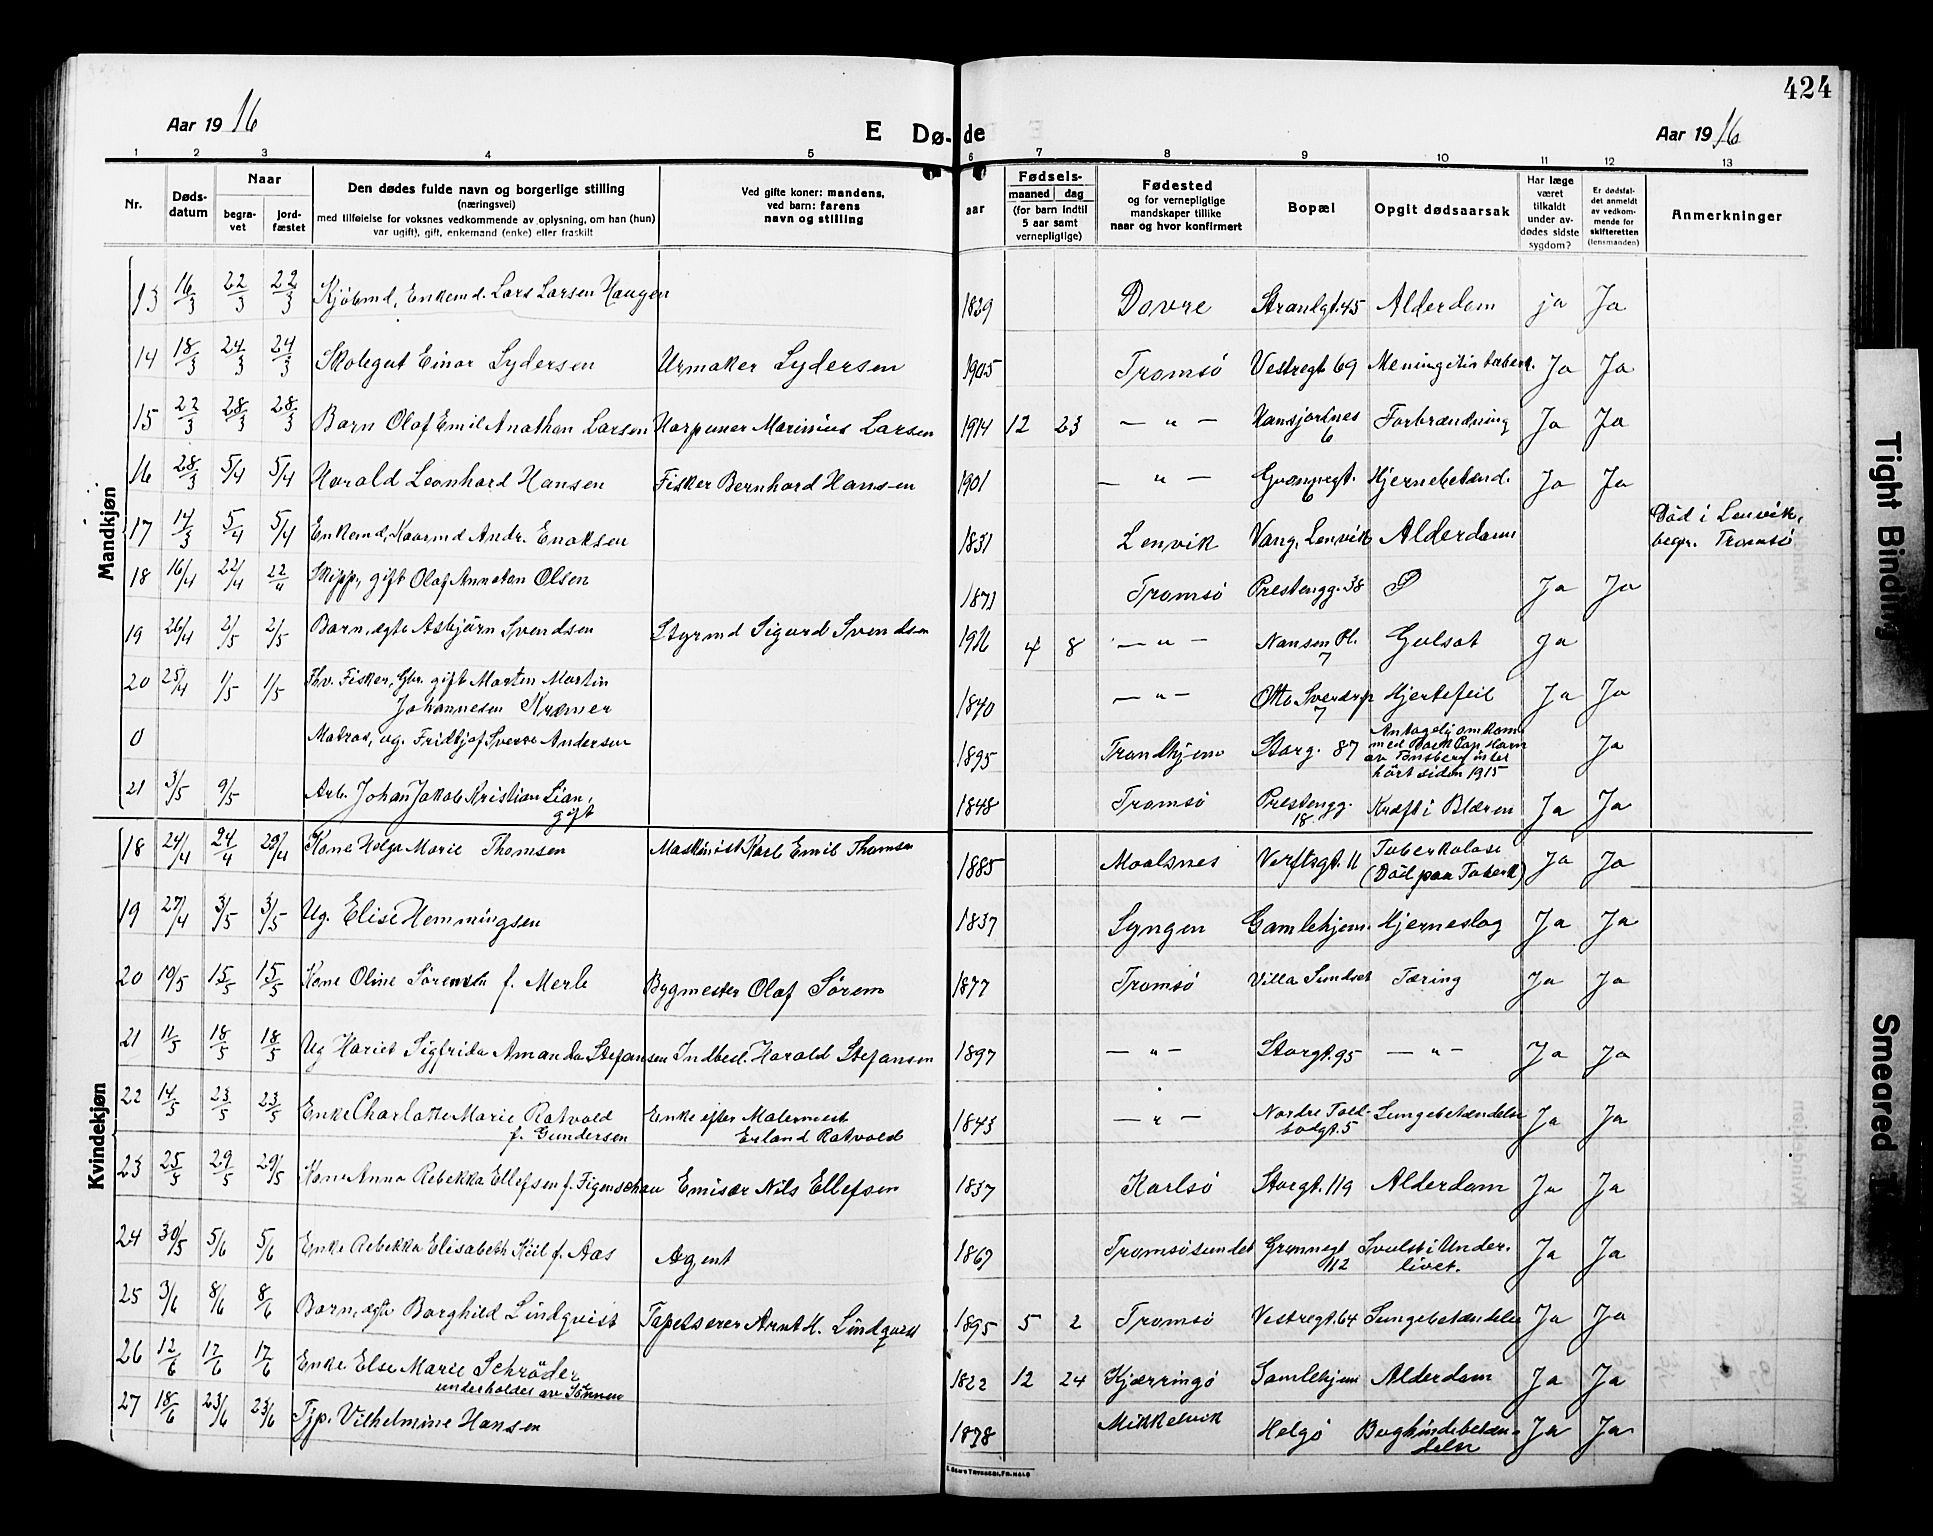 424
Aar 1916
E Døde
Aar 1916
1 2 3 4 5 6 7 8 9 10 11 12 13
Nr.
Døds-
datum
Naar
begra-
vet
jord-
fæstet
Den dødes fulde navn og borgerlige stilling
(næringsvei)
med tilføielse for voksnes vedkommende av oplysning, om han (hun)
var ugift), gift, enkemand (enke) eller fraskilt
Ved gifte koner: mandens,
ved barn: farens
navn og stilling
aar
Fødsels-
maaned dag
(for barn indtil
5 aar samt
vernepligtige)
Fødested
og for vernepligtige
mandskaper tillike
naar og hvor konfirmert
Bopæl
Opgit dødsaarsak
Har læge
været
tilkaldt
under av-
dødes sidste
sygdom?
Er dødsfal-
det anmeldt
av vedkom-
mende for
skifteretten
(lensmanden)
Anmerkninger
Mandkjøn
13 16/3 22/3 22/3 Kjøbmd, Enkemd. Lars Larsen Haugen 1839 Dovre Strandgt. 45 Alderdom ja Ja
14 18/3 24/3 24/3 Skolegut Einar Lydersen Urmaker Lydersen 1905 Tromsö Vestregt 69 Meningitis tuberk. Ja Ja
15 22/3 28/3 28/3 Barn Olaf Emil Anathon Larsen Harpuner Marinius Larsen 1914 12 23 — " — Hansjordnes Forbrændning Ja Ja
6
16 28/3 5/4 5/4 Harald Leonhard Hansen Fisker Bernhard Hansen 1901 — " — Grønnegt. Hjernebetænd. Ja Ja
6
17 14/3 5/4 5/4 Enkemd, Kaarmd Andr. Enoksen 1831 Lenvik Vang, Lenvik Alderdom Död i Lenvik,
begr. Tromsö
18 16/4 22/4 22/4 Skipp, gift Olaf Anneton Olsen 1871 Tromsö Prestengg. 38 Ja Ja
19 26/4 2/5 2/5 Barn, ægte Asbjörn Svendsen Styrmd Sigurd Svendsen 1916 4 8 — " — Nansen Pl. Gulsot Ja
7
20 25/4 1/5 1/5 Fhv. Fisker, Gbr. gift Morten Martin
Johannesen Kræmer 1840 — " — Otto Sverdrup Hjertefeil Ja Ja
7
0 Matros, ug. Fridtjof Sverre Andersen 1895 Trondhjem Storg. 87 Antagelig omkom
med Bark Cap Horn
av Tönsberg ei seet
hört siden 1915 Ja
21 3/5 9/5 Arb. Johan Jakob Kristian Lian,
gift 1848 Tromsö Prestengg. Kræft i Blæren Ja Ja
18
Kvindekjøn
18 24/4 24/4 28/4 Kone Helga Marie Thomsen Maskinist Karl Emil Thomsen 1885 Maalsnes Verftsgt. 11 Tuberkulose Ja Ja
(Död paa Tuberk)
19 27/4 3/5 3/5 Ug. Elise Hemmingsen 1837 Lyngen Gamlehjem. Hjerneslag Ja Ja
20 10/5 15/5 15/5 Kone Oline Sörensen f. Merli Bygmester Olaf Sörem 1877 Tromsö Villa Sundset Tæring Ja Ja
21 11/5 18/5 18/5 Ug Hariet Sigfrida Amanda Stefansen Indbest. Harald Stefansen 1897 — " — Storgt. 95 — " — Ja Ja
22 14/5 23/5 23/5 Enke Charlotte Marie Ratvold
f. Gundersen Enke efter Malermest
Erland Ratvold 1843 — " — Nordre Told-
bodgt. 5 Lungebetændelse Ja Ja
23 25/5 29/5 29/5 Kone Anna Rebekka Ellefsen f. Figenschau Emisær Nils Ellefsen 1837 Karlsö Storgt. 119 Alderdom Ja Ja
24 30/5 5/6 5/6 Enke Rebekka Elisabeth Keil f. Aas Agent 1867 Tromsösundet Grønnegt Svulst i Under-
112 livet. Ja Ja
25 3/6 8/6 8/6 Barn, ægte Borghild Lindqvist Tapetserer Arnt K. Lindqvist 1895 5 2 Tromsö Vestregt. 64 Lungebetændelse Ja Ja
26 12/6 17/6 17/6 Enke Else Marie Schröder 1822 12 24 Kjærringö Gamlehjem Alderdom Ja Ja
underholdes av Sönnen
27 18/6 23/6 23/6 Tjp. Vilhelmine Hansen 1878 Mikkelvik Helgö Bughindebetæn-
delse Ja Ja
Tight Binding
Smeared